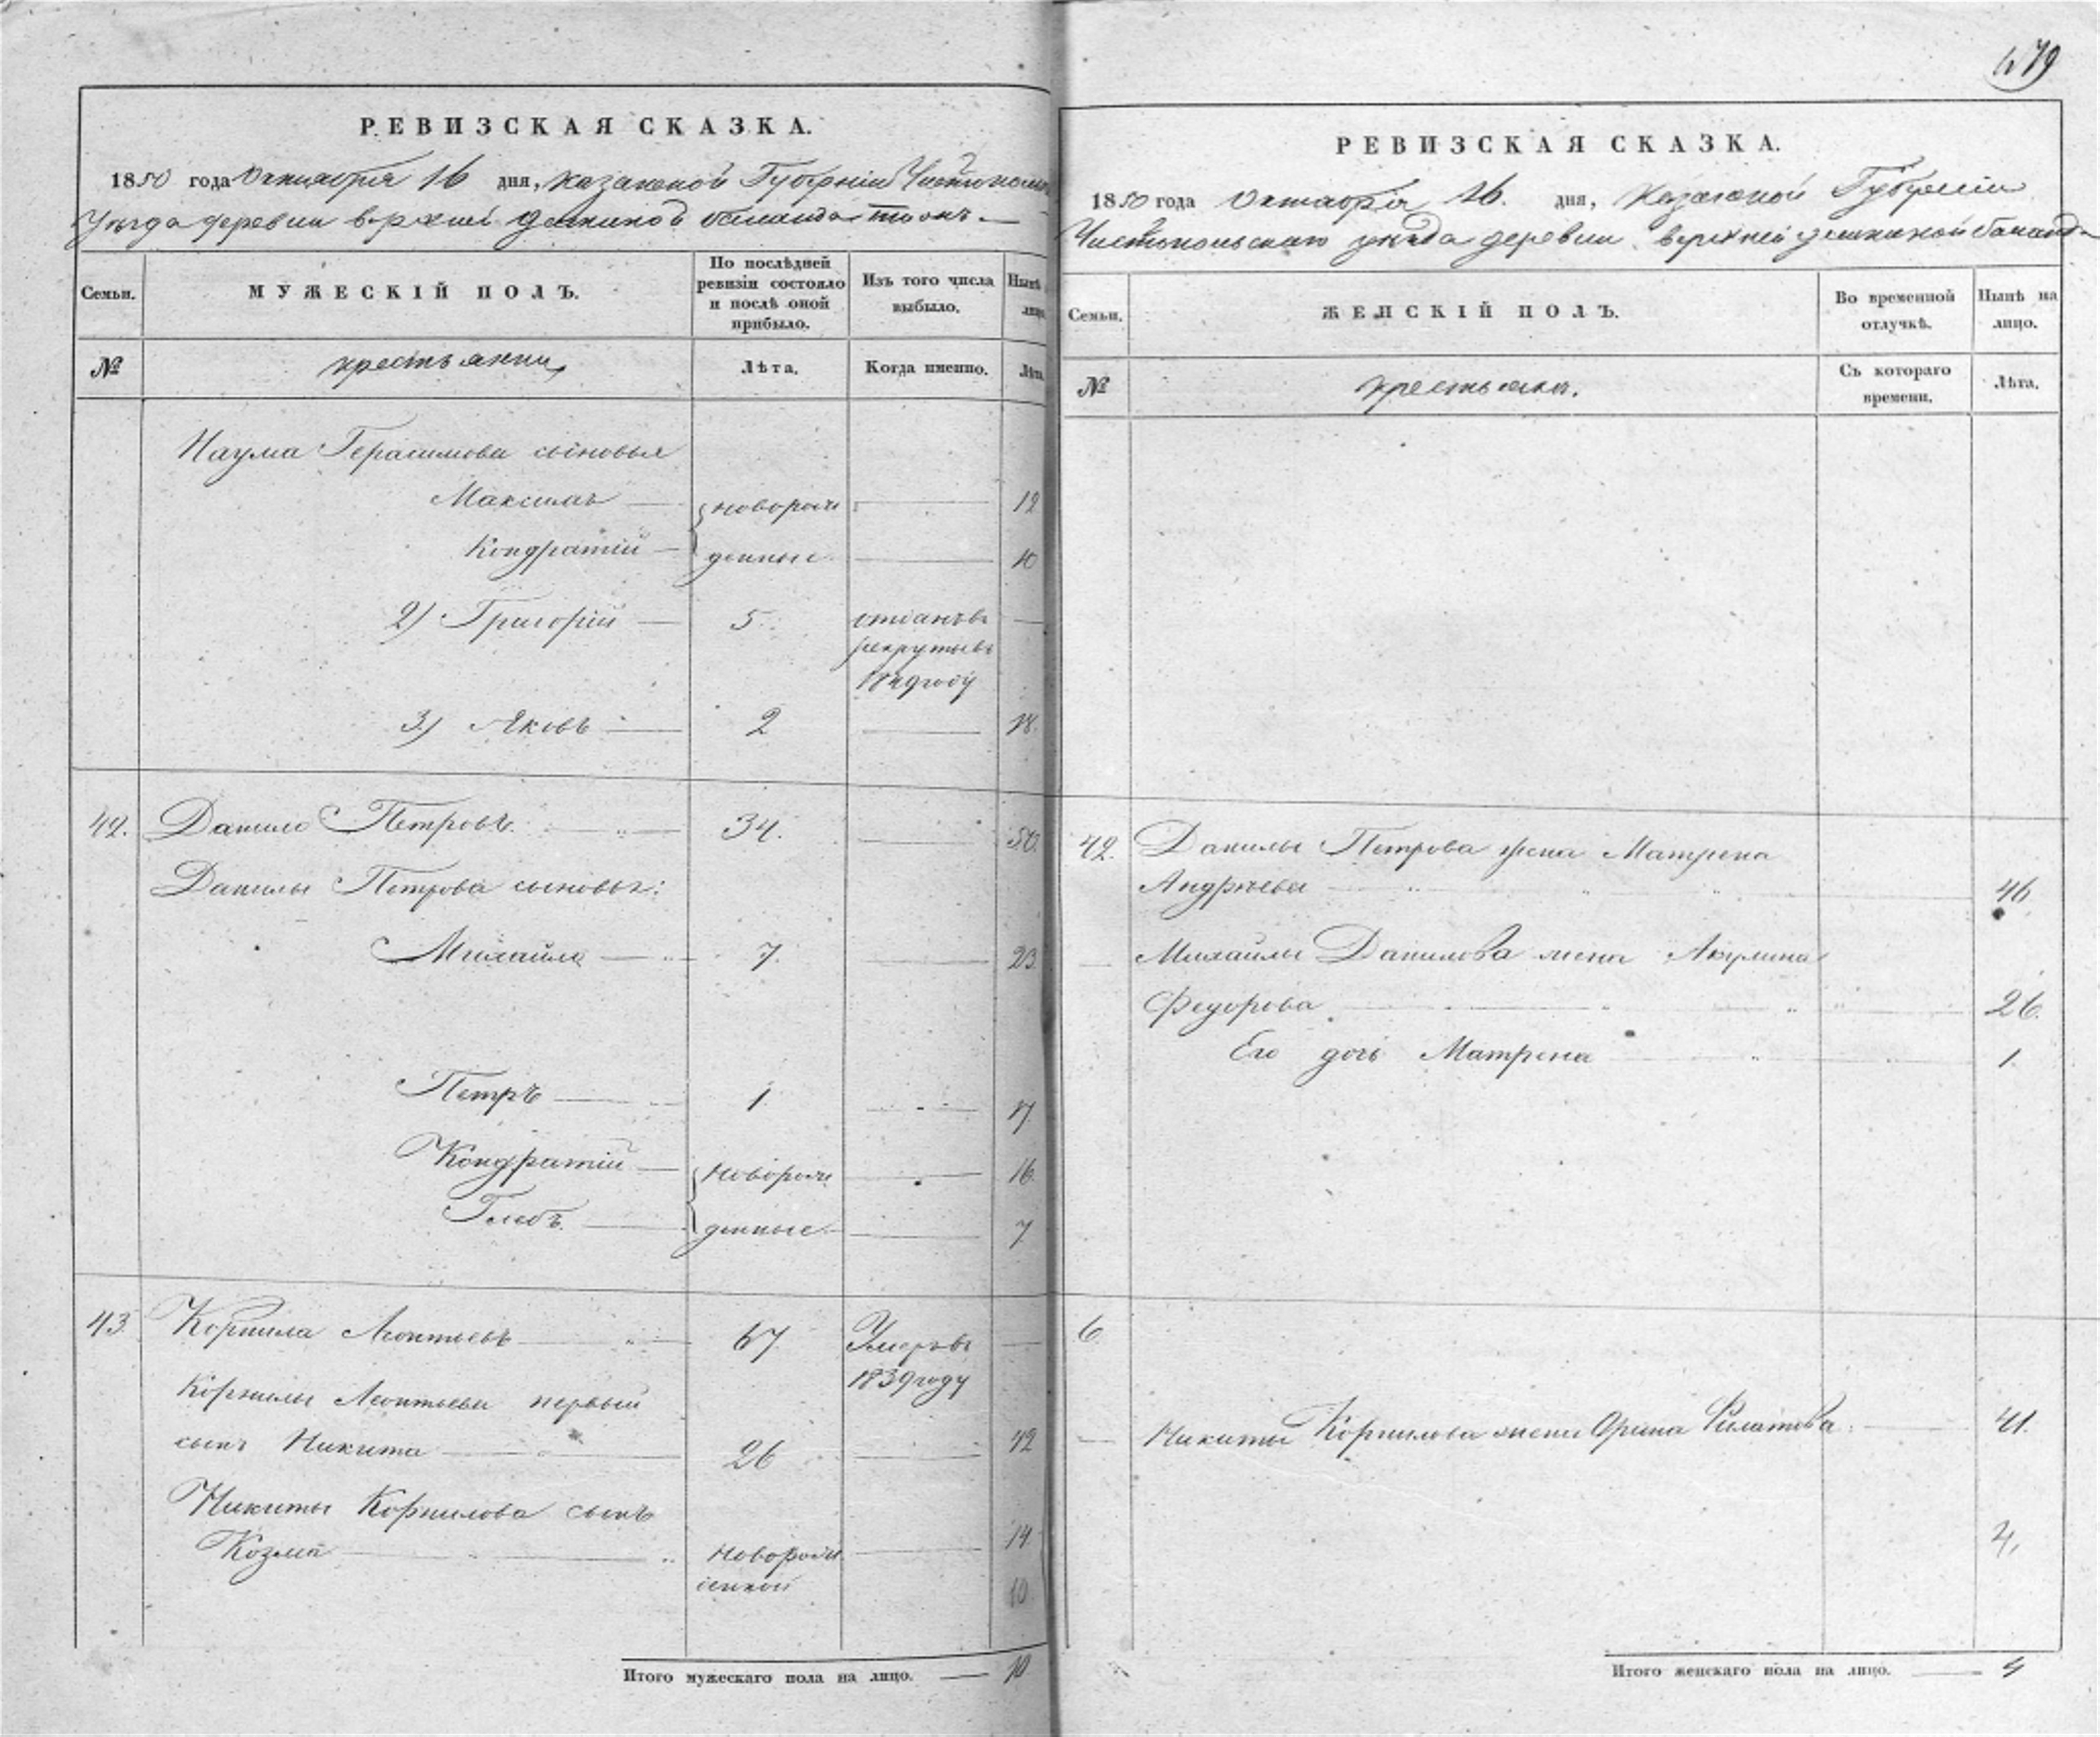 479
РЕВИЗСКАЯ СКАЗКА.
1850 года Октября 16 дня, Казанской Губернии Чистополь
Уѣзда деревни верхней
Семьи.
МУЖЕСКІЙ ПОЛЪ.
По послѣдней ревизіи состояло и послѣ оной прибыло.
Изъ того числа выбыло.
Нынѣ на лицо.
№
крестьянин
Лѣта.
Когда именно.
Лѣта.
Наума Герасимова сыновья
Максимъ новорож 12
Кондратій денные 10
2) Григорій 5. отданъ въ
рекруты въ
1849 году
3) Яковъ 2 18.
42. Данило Петровъ 34. 50.
Данилы Петрова сыновья:
Михайло 7. 23
Петръ 1 17
Кондратій новорож 16
Глебъ денные 7
43 Корнила Леонтьевъ 67 Умеръ въ
1839 году
Корнилы Леонтьева первый
сынъ Никита 26 42
Никиты Корнилова сынъ 14
Козма новорож
денной 10
Итого мужескаго пола на лицо. 10
РЕВИЗСКАЯ СКАЗКА.
1850 года Октября 16. дня, Казанской Губернии
Чистопольскаго уѣзда деревни верхней
Семьи.
ЖЕНСКІЙ ПОЛЪ.
Во временной отлучкѣ.
Нынѣ на лицо.
№
крестьян.
Съ котораго времени.
Лѣта.
42. Данилы Петрова жена Матрена
Андрѣева 46
Михайлы Данилова жена Акулина
Федорова 26.
Его дочь Матрена 1.
6
Никиты Корнилова жена Орина Филатова 41.
4.
Итого женскаго пола на лицо. 4